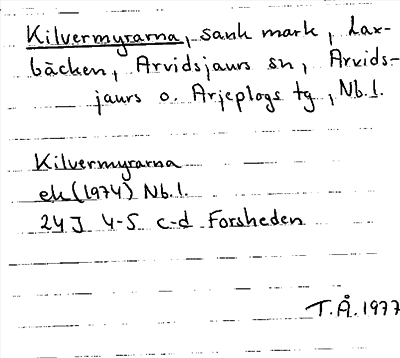 Kilvermyrarna, sank mark, Lax-
bäcken, Arvidsjaurs sn, Arvids-
jaurs o. Arjeplogs tg, Nb.l.
Kilvermyrarna
ek (1974) Nb.l.
24J 4-5 c-d Forsheden
T.Å. 1977